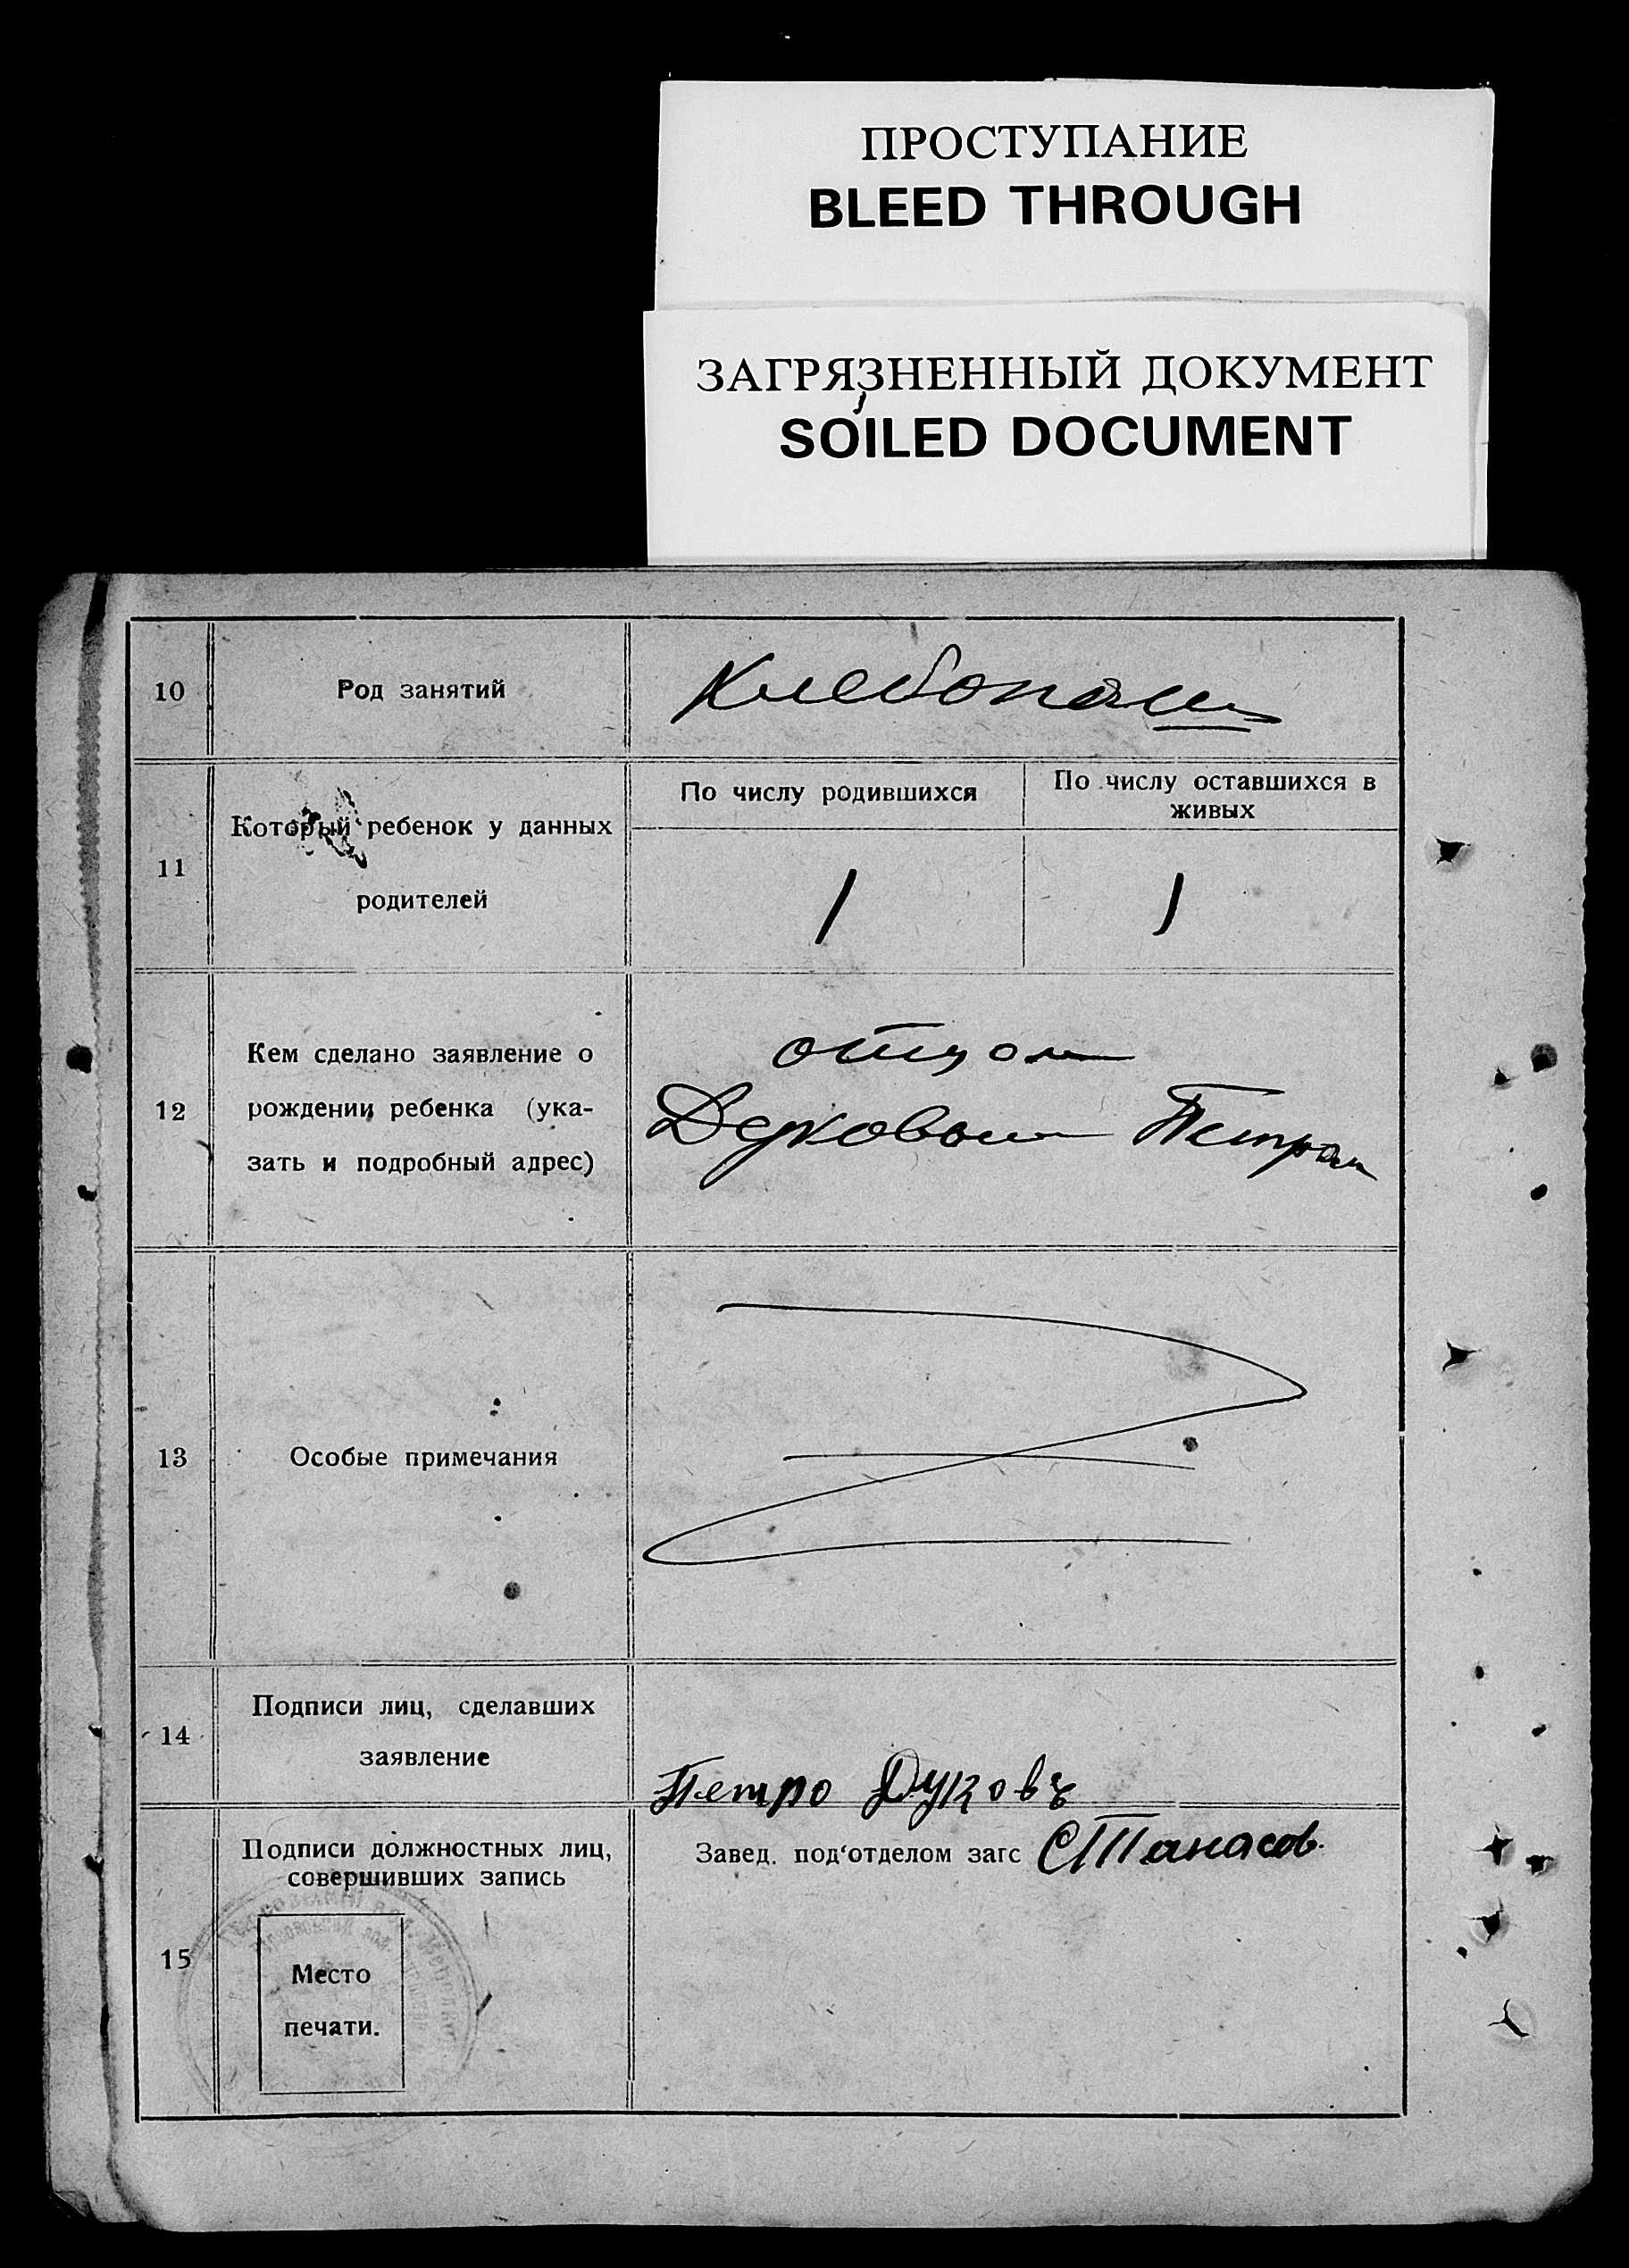 ПРОСТУПАНИЕ
BLEED THROUGH
ЗАГРЯЗНЕННЫЙ ДОКУМЕНТ
SOILED DOCUMENT
10
Род занятий
Хлебопаш
11
Который ребенок у данных
родителей
По числу родившихся
По числу оставшихся в
живых
1
1
12
Кем сделано заявление о
рождении ребенка (ука-
зать и подробный адрес)
отцом
Дуковым Петром
13
Особые примечания
14
Подписи лиц, сделавших
заявление
Петро Дуковъ
15
Подписи должностных лиц,
совершивших запись
Завед. под'отделом загс СТанасов
Место
печати.